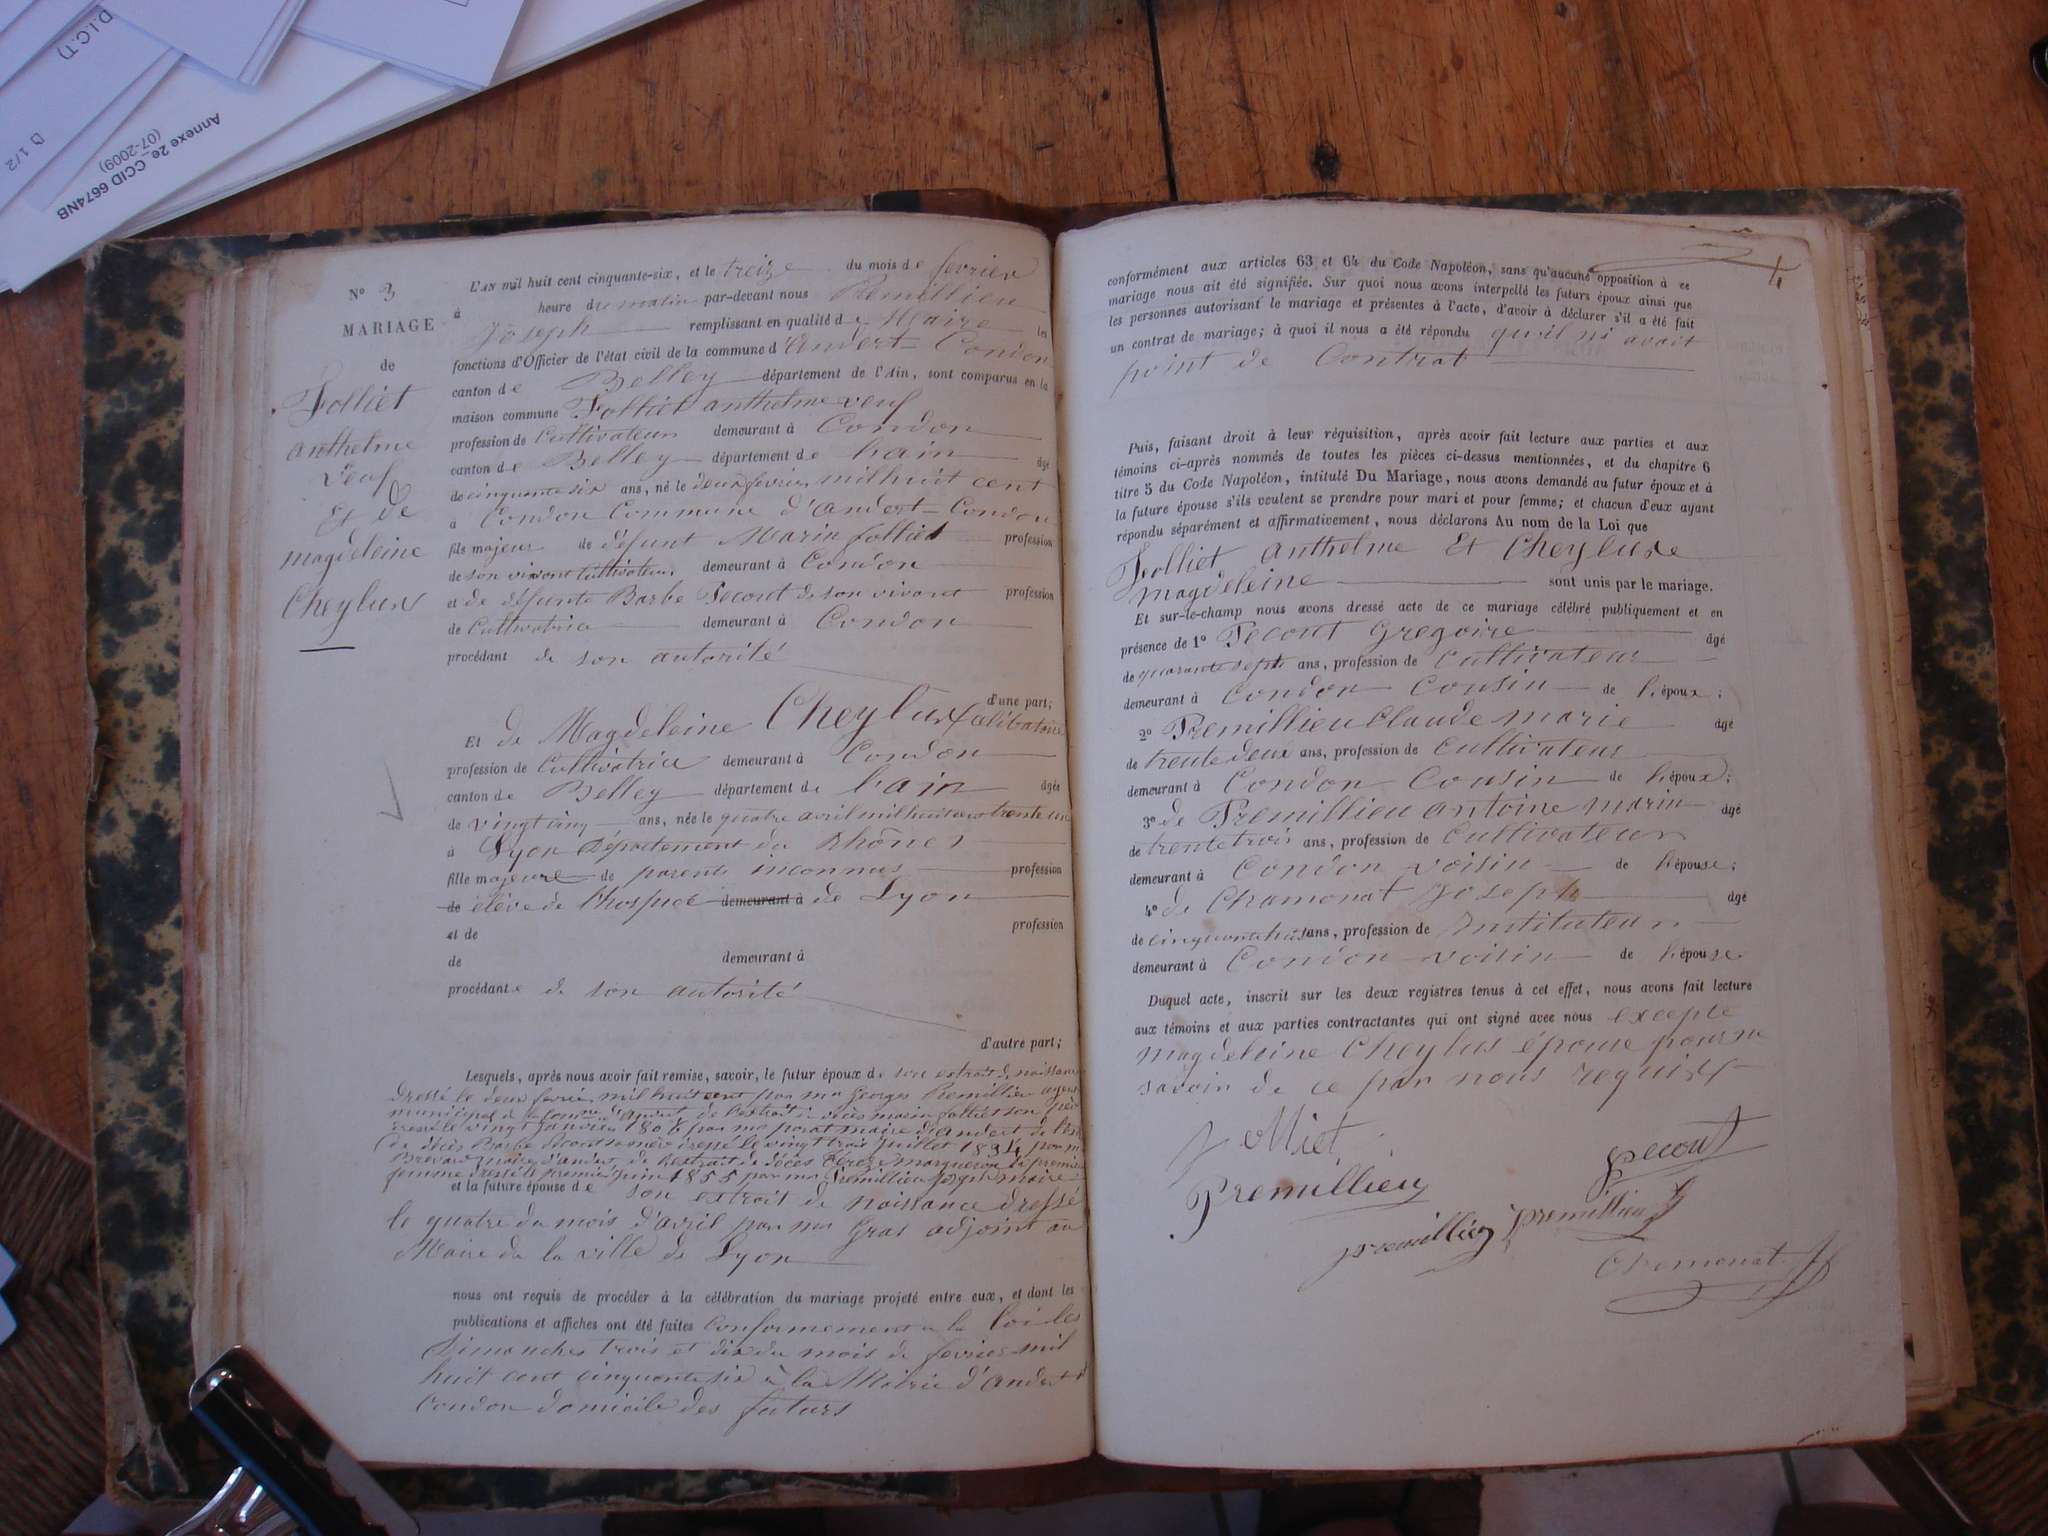 D.I.C.T)
1/2
Annexe 2e_CCID 6674NB
(07-2009)
N° 3
MARIAGE
de
Folliet
anthelme
Veuf
Et de
magdeleine
Cheylus
L'AN mil huit cent cinquante-six, et le treize du mois de fevrier
à heure du matin par-devant nous Premillieu
Joseph remplissant en qualité de Maire les
fonctions d'Officier de l'état civil de la commune d'Andert-Condon
canton de Belley département de l'Ain, sont comparus en la
maison commune Folliet anthelme veuf
profession de Cultivateur demeurant à Condon
canton de Belley département de l'ain âgé
de cinquante six ans, né le deux fevrier mil huit cent
à Condon Commune d'andert-Condon
fils majeur de défunt Marin folliet profession
de son vivant Cultivateur demeurant à Condon
et de défunte Barbe Pecout de son vivant profession
de Cultivatrice demeurant à Condon
procédant de son autorité
d'une part;
Et de Magdeleine Cheylus célibataire
profession de Cultivatrice demeurant à Condon
canton de Belley département de l'ain âgée
de vingt cinq ans, née le quatre avril mil huit cent trente un
à Lyon département du Rhône
fille majeure de parents inconnus profession
de élève de l'hospice demeurant à de Lyon
et de profession
de demeurant à
procédante de son autorité
d'autre part;
Lesquels, après nous avoir fait remise, savoir, le futur époux de son extrait de naissance
dressé le deux fevrier mil huit cent par mr Georges Premillieu agent
municipal de la Comune d'andert de l'extrait de décès marin folliet son père
dressé le vingt janvier 1808 par mr maire d'andert de
de décès Barbe Pecout sa mère dressé le vingt trois juillet 1834 par mr
maire d'andert, de l'extrait de décès sa première
femme dressé le premier juin 1855 par mr Premillieu joseph maire
et la future épouse de son extrait de naissance dressé
le quatre du mois d'avril par mr Gras adjoint au
Maire de la ville de Lyon
nous ont requis de procéder à la célébration du mariage projeté entre eux, et dont les
publications et affiches ont été faites Conformement a la loi les
Dimanches trois et dix du mois de fevrier mil
huit cent cinquante six à la Mairie d'andert
Condon domicile des futurs
4
conformément aux articles 63 et 64 du Code Napoléon, sans qu'aucune opposition à ce
mariage nous ait été signifiée. Sur quoi nous avons interpellé les futurs époux ainsi que
les personnes autorisant le mariage et présentes à l'acte, d'avoir à déclarer s'il a été fait
un contrat de mariage; à quoi il nous a été répondu qu'il ni avait
point de Contrat
Puis, faisant droit à leur réquisition, après avoir fait lecture aux parties et aux
témoins ci-après nommés de toutes les pièces ci-dessus mentionnées, et du chapitre 6
titre 5 du Code Napoléon, intitulé Du Mariage, nous avons demandé au futur époux et à
la future épouse s'ils veulent se prendre pour mari et pour femme; et chacun d'eux ayant
répondu séparément et affirmativement, nous déclarons Au nom de la Loi que
Folliet anthelme Et Cheyluse
magdeleine sont unis par le mariage.
Et sur-le-champ nous avons dressé acte de ce mariage célébré publiquement et en
présence de 1° Pecout Gregoire âgé
de quarante sept ans, profession de Cultivateur
demeurant à Condon Cousin de l'époux;
2° Premillieu Claude marie âgé
de trente deux ans, profession de Cultivateur
demeurant à Condon Cousin de l'époux;
3° de Premillieu antoine marin âgé
de trente trois ans, profession de Cultivateur
demeurant à Condon voisin de l'épouse;
4° de Chamonat Joseph âgé
de cinquante huit ans, profession de Instituteur
demeurant à Condon voisin de l'épouse
Duquel acte, inscrit sur les deux registres tenus à cet effet, nous avons fait lecture
aux témoins et aux parties contractantes qui ont signé avec nous excepté
magdeleine Cheylus épouse pour ne
savoir de ce par nous requise
folliet
pecout
Premillieu
premillieu premillieu
Chamonat